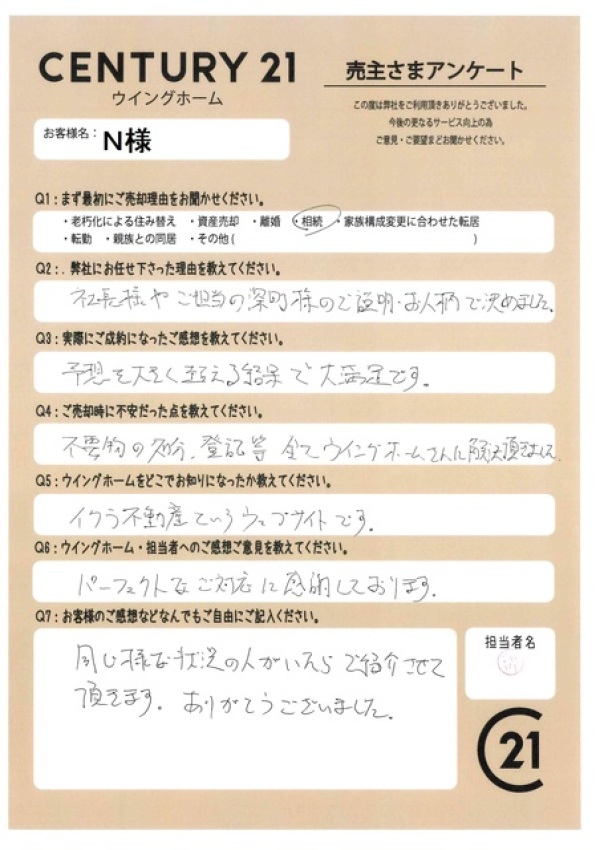 CENTURY 21
ウイングホーム
売主さまアンケート
この度は弊社をご利用頂きありがとうございました。
今後の更なるサービス向上の為
ご意見・ご要望までお聞かせください。
お客様名： N様
Q1：まず最初にご売却理由をお聞かせください。
・老朽化による住み替え ・資産売却 ・離婚 ・相続 ・家族構成変更に合わせた転居
・転勤 ・親族との同居 ・その他 ( )
Q2：. 弊社にお任せ下さった理由を教えてください。
社長様やご担当の深町様のご説明・お人柄で決めました。
Q3：実際にご成約になったご感想を教えてください。
予想を大きく超える結果で大満足です。
Q4：ご売却時に不安だった点を教えてください。
不要物の処分、登記等 全てウイングホームさんに解決頂きました。
Q5：ウイングホームをどこでお知りになったか教えてください。
イクラ不動産ていうウェブサイトです。
Q6：ウイングホーム・担当者へのご感想ご意見を教えてください。
パーフェクトなご対応に感謝しております。
Q7：お客様のご感想などなんでもご自由にご記入ください。
同じ様な状況の人がいたらご紹介させて
頂きます。ありがとうございました。
担当者名
C21